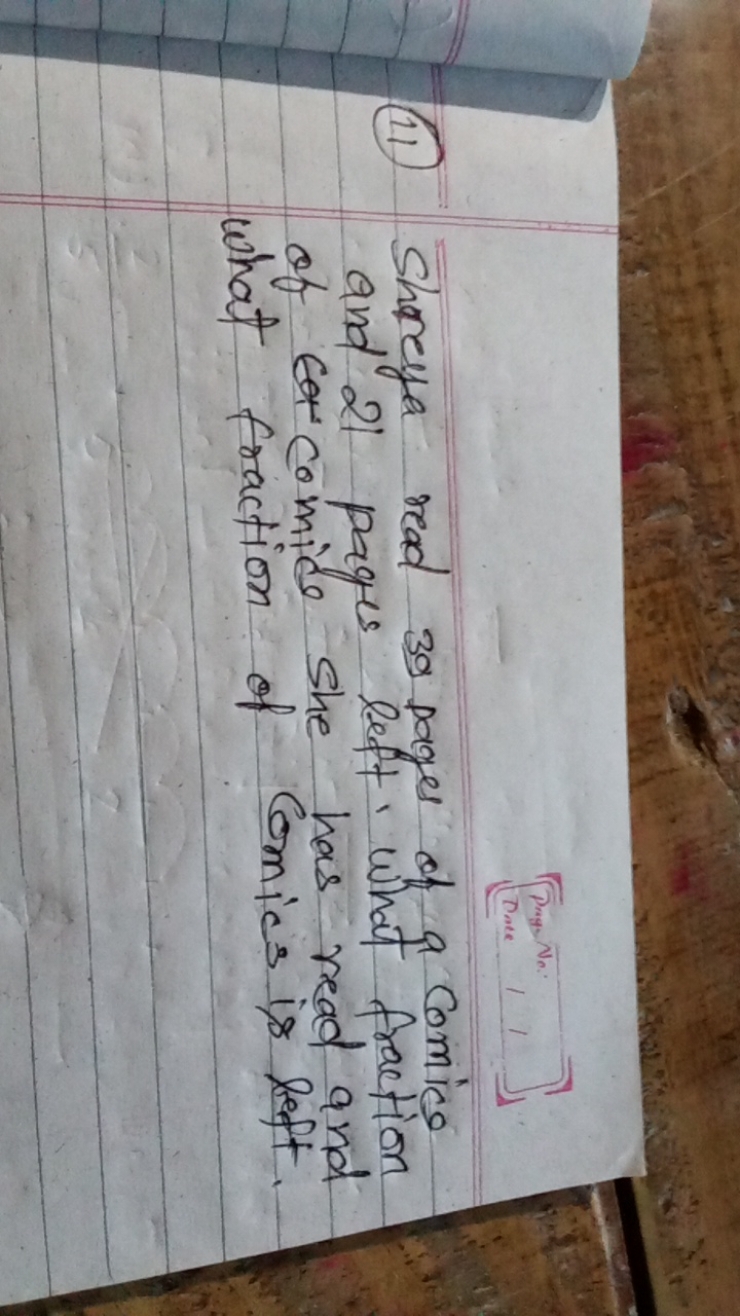 Page No.:
Date / /
(11) Shreya read 39 pages of a comics
and 21 pages left. what fraction
of comics she has read and
what fraction of Comics is left.